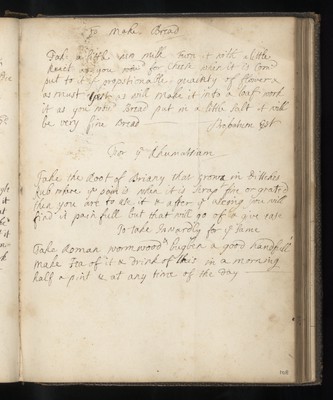 To Make Bread
Take a little skim milk turn it with a little
as you would for Cheese when it is Turn'd
put to it a proportionable quantity of flower
as must just as will make it into a loaf work
it as you would Bread put in a little salt it will
be very fine Bread Probatum Est
For ye Rhumatism
Take the Root of Briany that grows in Ditches
rub where ye pain is when it is Scrap'd fine or grated
then you are to use it & after ye useing you will
find it painfull but that will go of & give ease
To take Inwardly for ye same
Take Roman wormwood a good handfull
make Tea of it & Drink of this in a morning
half a pint & at any time of the day